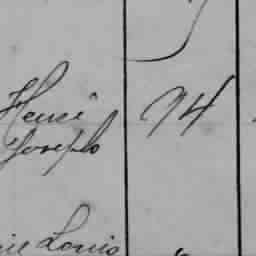 Henri 74
Joseph
Louis